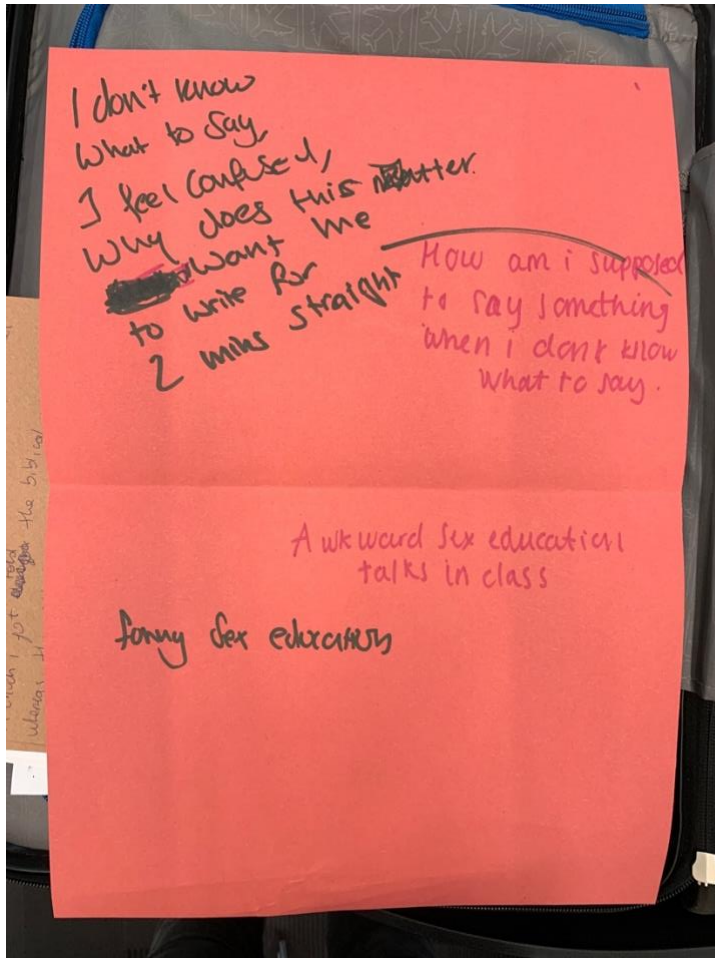 I don't know
What to say,
I feel confused,
Why does this matter.
want me
to write for
2 mins straight
How am i supposed
to say something
when i dont know
what to say.
Awkward sex education
talks in class
fonny sex education
the biblical
whereas